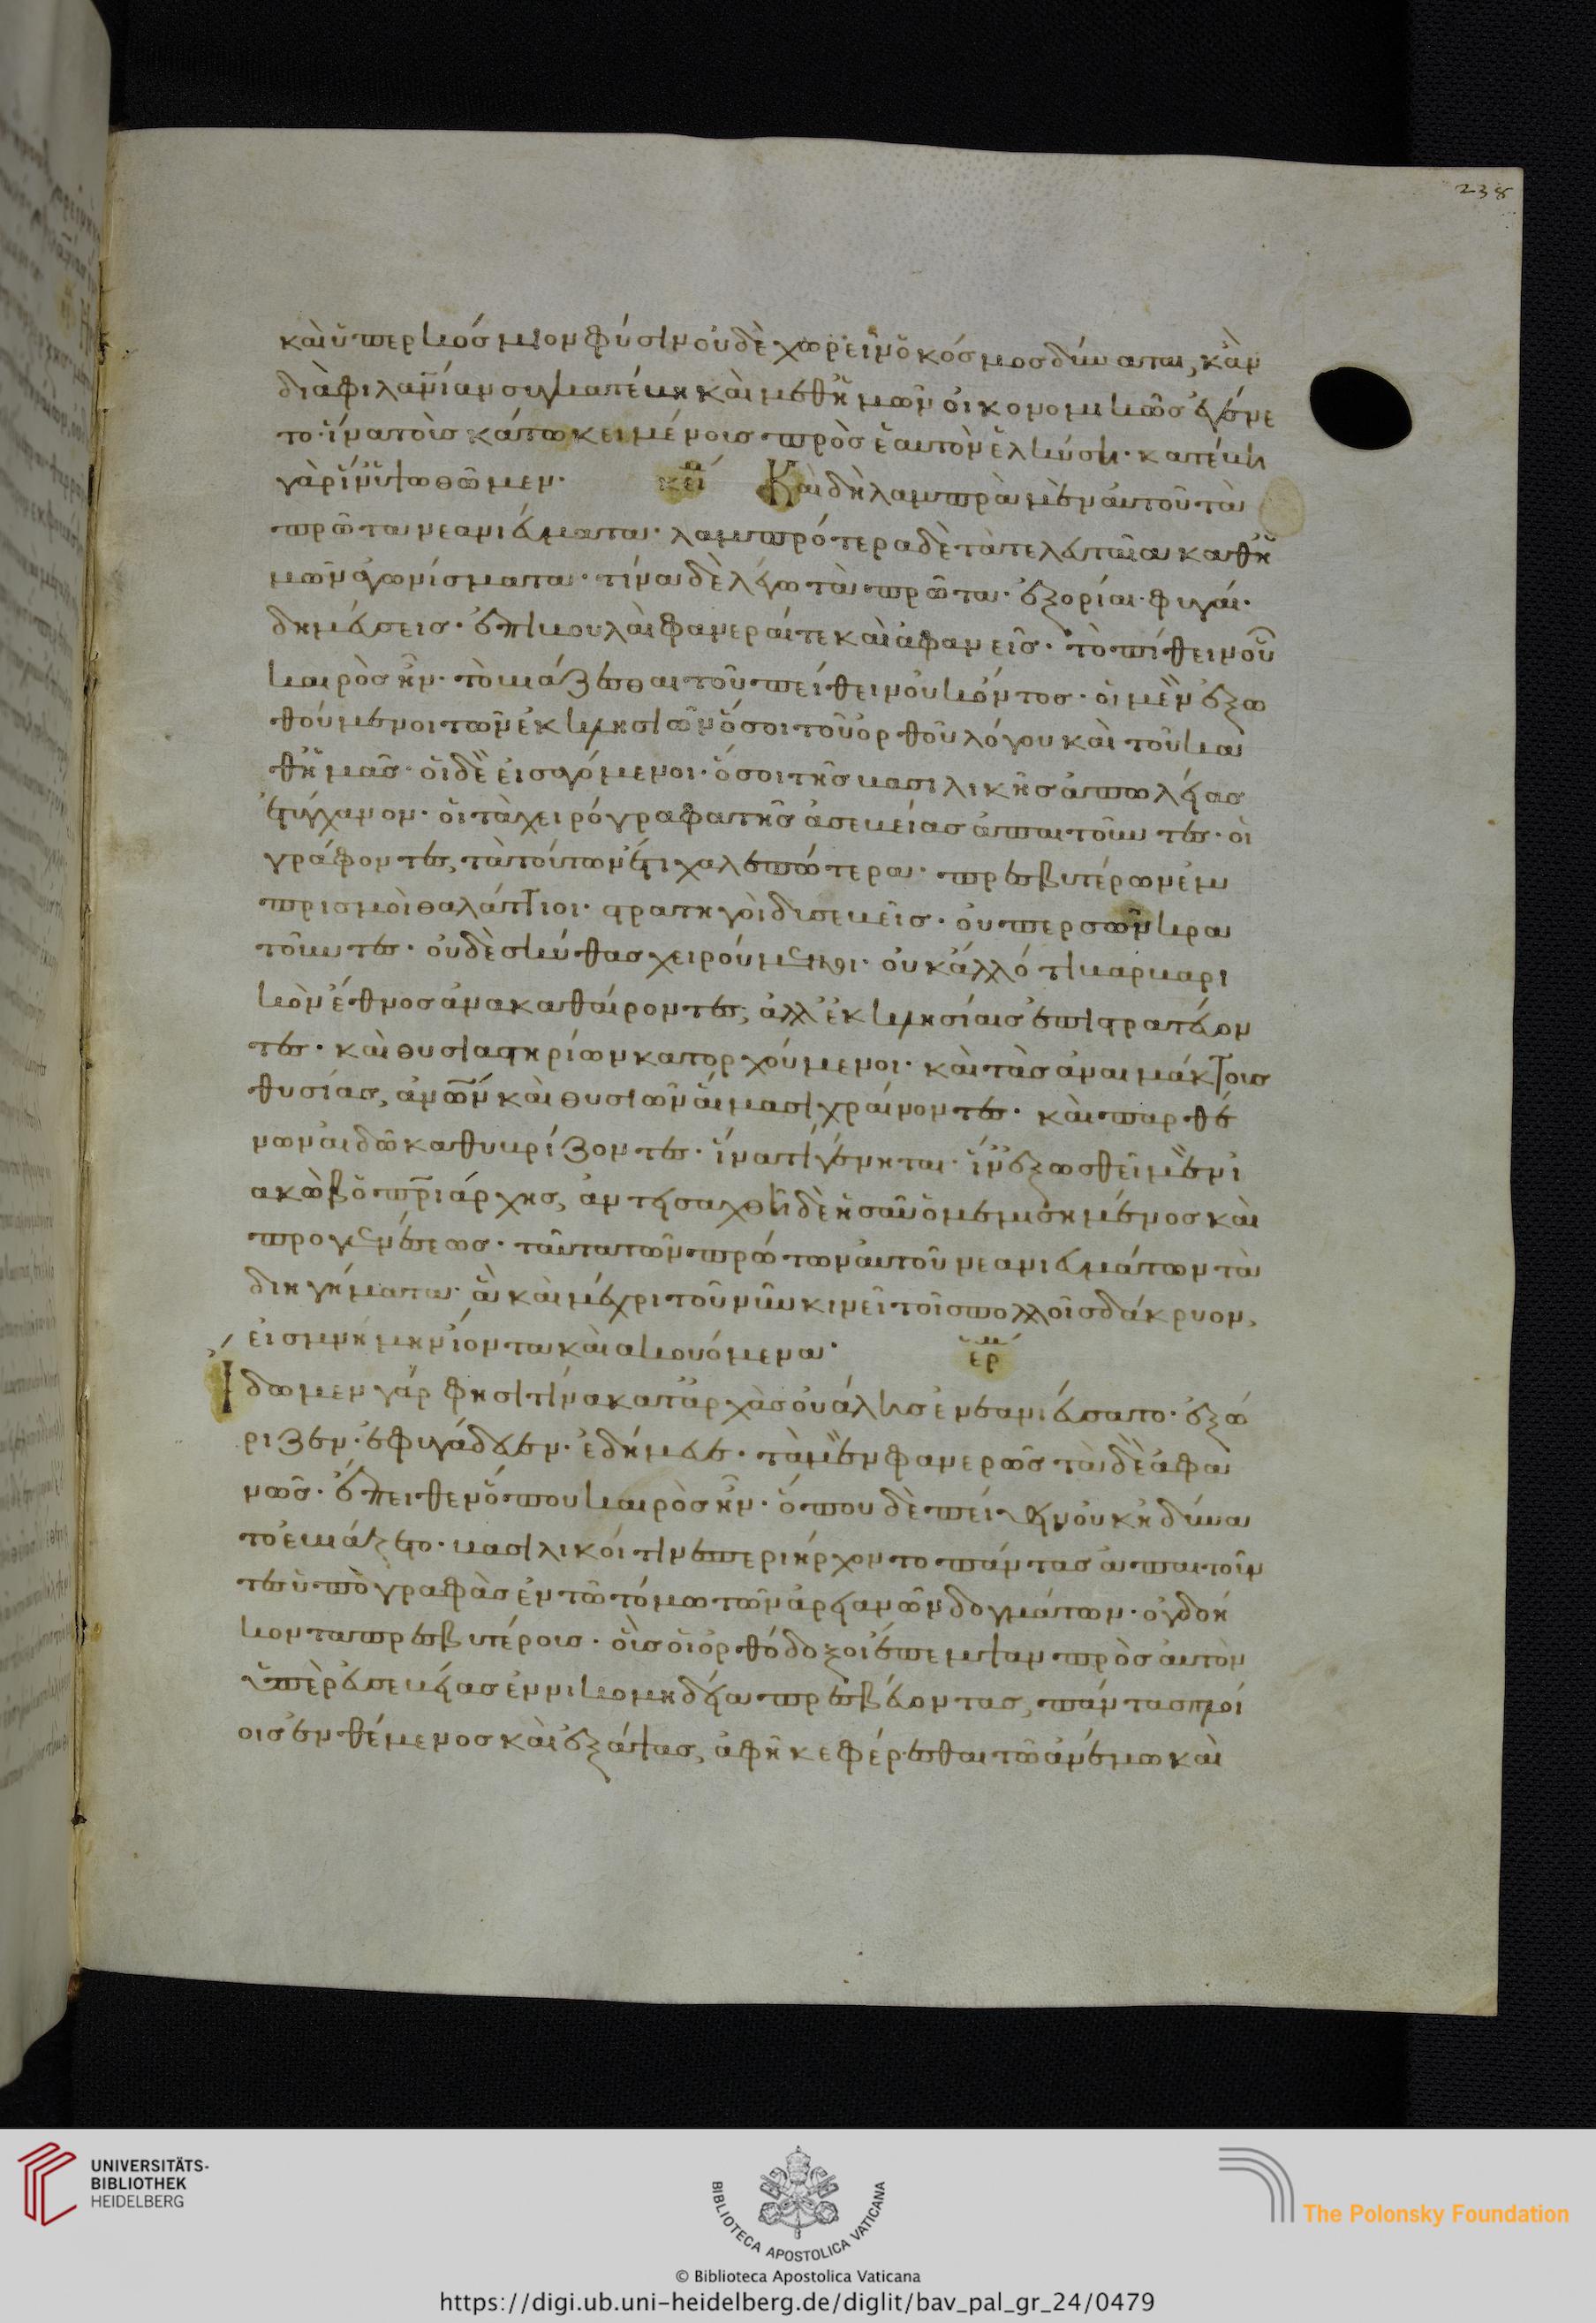 238
καὶ ὑπερκόσμιον φύσιν οὐδὲ χωρεῖν ὁ κόσμος δύναται, κἂν
διὰ φιλαν̅ίαν συγκατέβη καὶ μεθ' ἡμῶν οἰκονομικῶς ἐγένε
το· ἵνα τοῖς κάτω κειμένοις πρὸς ἑαυτὸν ἑλκύση· κατέβη
γὰρ ἵν' ὑψωθῶμεν· κεί Καὶ δὴ λαμπρὰ μὲν αὐτοῦ τὰ
πρῶτα νεανιεύματα· λαμπρότερα δὲ τὰ τελευταῖα καθ' ἡ
μῶν ἀγωνίσματα· τίνα δὲ λέγω τὰ πρῶτα· ἐξορίαι· φυγαί·
δημεύσεις· ἐπιβουλαὶ φανεραί τε καὶ ἀφανεῖς· τὸ πείθειν οὗ
καιρὸς ἦν· τὸ βιάζεσθαι τοῦ πείθειν οὐκ ὄντος· οἱ μὲν ἐξω
θούμενοι τῶν ἐκκλησιῶν ὅσοι τοῦ ὀρθοῦ λόγου καὶ τοῦ κα
θ' ἡμᾶς· οἱ δὲ εἰσαγόμενοι· ὅσοι τῆς βασιλικῆς ἀπωλείας
ἐτύγχανον· οἱ τὰ χειρόγραφα τῆς ἀσεβείας ἀπαιτοῦντες· οἱ
γράφοντες, τὰ τούτων ἔτι χαλεπώτερα· πρεσβυτέρων ἐμ
πρισμοὶ θαλάττιοι· στρατηγοὶ δυσεβεῖς· οὐ περσῶν κρα
τοῦντες· οὐδὲ σκύθας χειρούμενοι· οὐκ ἄλλό τι βαρβαρι
κὸν ἔθνος ἀνακαθαίροντες, ἀλλ' ἐκκλησίαις ἐπιστρατεύον
τες· καὶ θυσιαστηρίων κατορχούμενοι· καὶ τὰς ἀναιμάκτους
θυσίας, ἀν̅ων καὶ θυσιῶν αἵμασι χραίνοντες· καὶ παρθέ
νων αἰδῶ καθυβρίζοντες· ἵνα τί γένηται· ἵν' ἐξωσθῆ μὲν ἰ
ακὼβ ὁ πρ̅ιάρχης, ἀντεισαχθῆ δὲ ἡσαῦ ὁ μεμισημένος καὶ
προ γενέσεως· ταῦτα τῶν πρώτων αὐτοῦ νεανιευμάτων τὰ
διηγήματα· ἃ καὶ μέχρι τοῦ νῦν κινεῖ τοῖς πολλοῖς δάκρυον,
εἰς μνήμην ἰόντα καὶ ἀκουόμενα· ἑρμ
Ιδωμεν γάρ φησι τίνα κατ' ἀρχὰς οὐάλης ἐνεανιεύσατο· ἐξώ
ριζεν· ἐφυγάδευεν· ἐδήμευε· τὰ μὲν φανερῶς τὰ δὲ ἀφα
νῶς· ἔπειθεν ὅπου καιρὸς ἦν· ὅπου δὲ πείθειν οὐκ ἠδύνα
το ἐβιάζετο· βασιλικοί τινες περιήρχοντο πάντας ἀπαιτοῦν
τες ὑπογραφὰς ἐν τῶ τόμω τῶν ἀρειανῶν δογμάτων· ὀγδοή
κοντα πρεσβυτέροις· οἷς οἱ ὀρθόδοξοι ἔπεμψαν πρὸς αὐτὸν
ὑπὲρ εὐσεβείας ἐν νικομηδεία πρεσβεύοντας, πάντας πλοί
οις ἐνθέμενος καὶ ἐξάψας, ἀφῆκε φέρεσθαι τῶ ἀνέμω καὶ
UNIVERSITÄTS-
BIBLIOTHEK
HEIDELBERG
BIBLIOTECA APOSTOLICA VATICANA
The Polonsky Foundation
© Biblioteca Apostolica Vaticana
https://digi.ub.uni-heidelberg.de/diglit/bav_pal_gr_24/0479